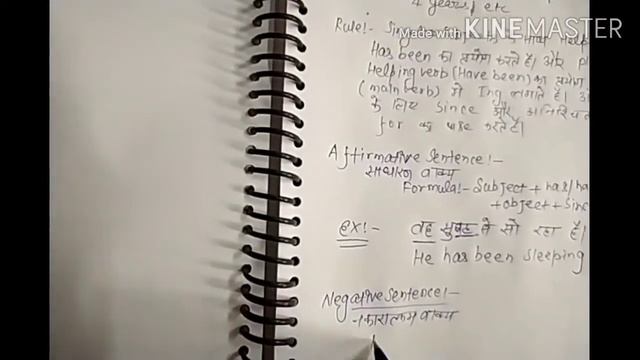 4 years, etc
Made with KINEMASTER
Rule:- Sing
Has been का प्रयोग करते है। और Pl
Helping verb (Have been) का प्रयोग
(main verb) में Ing लगाते है।
के लिए since और अनिश्चित
for का करते है।
Affirmative sentence:-
साधारण वाक्य
Formula:- Subject + has/ha
+ object + Sinc
ex:- वह सुबह से सो रहा है।
He has been sleeping
Negative sentence:-
नकारात्मक वाक्य